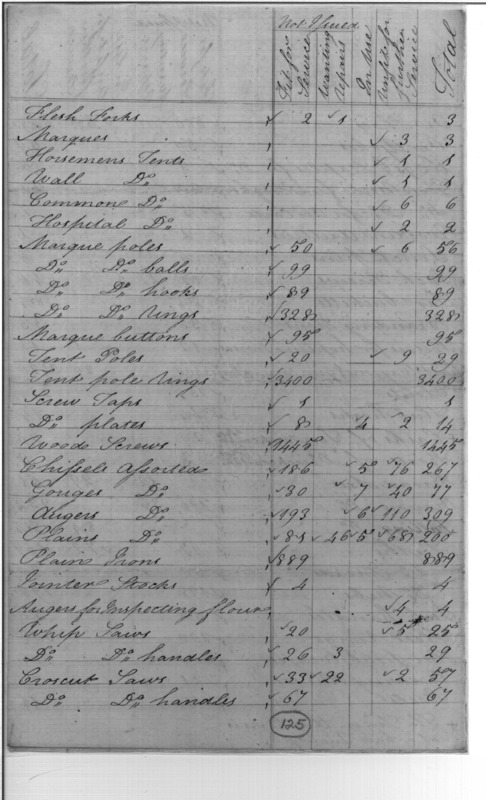 Not Issued
Fit for Service
Wanting Repairs
In Use
Unfit for further Service
Total
Flesh Forks 2 1 3
Marques 3 3
Horsemens Tents 1 1
Wall Do. 1 1
Commone Do. 6 6
Hospital Do. 2 2
Marque poles 50 6 56
Do. Do. balls 99 99
Do. Do. hooks 89 89
Do. Do. rings 328 328
Marque buttons 95 95
Tent Poles 20 9 29
Tent pole rings 3400 3400
Screw Taps 1 1
Do. plates 8 4 2 14
Wood Screws 1445 1445
Chissels assorted 186 5 76 267
Gouges Do. 30 7 40 77
Augers Do. 193 6 110 309
Plains Do. 81 46 5 68 200
Plain Irons 889 889
Jointer Stocks 4 4
Augers for Inspecting flour 4 4
Whip Saws 20 5 25
Do. Do. handles 26 3 29
Croscut Saws 33 22 2 57
Do. Do. handles 67 67
125